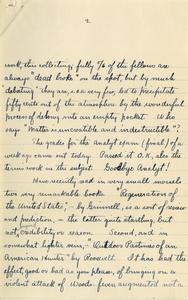 2
work, this collecting; fully 7/8 of the fellows are
always "dead broke" on the spot, but by much
debating they are, some very few, led to precipitate
fifty cents out of the atmosphere by the wonderful
process of delving into an empty pocket. Who
says "matter is uncreatable and indestructible"?
The grades for the Analyt exam (final) of a
week ago came out today. Passed it O.K. also the
term work in the subject. Goodbye Analyt!
Have recently read in very small morsels
two very remarkable books. "Regeneration of
the United States", by Grinnell, is a sort of review
and prediction, — the latter quite startling, but
not credibility or reason. Second, and in
somewhat lighter vein, "Outdoor Pastimes of an
American Hunter" by Roosevelt. It has had the
effect, good or bad as you please, of bringing on a
violent attack of Woods-fever augmented not a